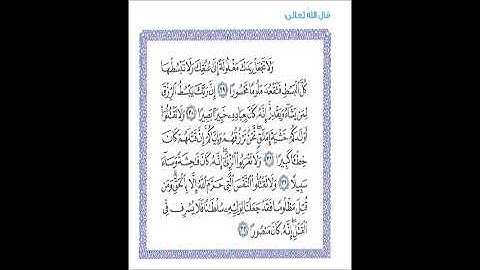 قال الله تعالى:
وَلَا تَجْعَلْ يَدَكَ مَغْلُولَةً إِلَىٰ عُنُقِكَ وَلَا تَبْسُطْهَا
كُلَّ الْبَسْطِ فَتَقْعُدَ مَلُومًا مَّحْسُورًا ﴿٢٩﴾ إِنَّ رَبَّكَ يَبْسُطُ الرِّزْقَ
لِمَن يَشَاءُ وَيَقْدِرُ ۚ إِنَّهُ كَانَ بِعِبَادِهِ خَبِيرًا بَصِيرًا ﴿٣٠﴾ وَلَا تَقْتُلُوا
أَوْلَادَكُمْ خَشْيَةَ إِمْلَاقٍ ۖ نَّحْنُ نَرْزُقُهُمْ وَإِيَّاكُمْ ۚ إِنَّ قَتْلَهُمْ كَانَ
خِطْئًا كَبِيرًا ﴿٣١﴾ وَلَا تَقْرَبُوا الزِّنَىٰ ۖ إِنَّهُ كَانَ فَاحِشَةً وَسَاءَ
سَبِيلًا ﴿٣٢﴾ وَلَا تَقْتُلُوا النَّفْسَ الَّتِي حَرَّمَ اللَّهُ إِلَّا بِالْحَقِّ ۗ وَمَن
قُتِلَ مَظْلُومًا فَقَدْ جَعَلْنَا لِوَلِيِّهِ سُلْطَانًا فَلَا يُسْرِف فِّي
الْقَتْلِ ۖ إِنَّهُ كَانَ مَنصُورًا ﴿٣٣﴾